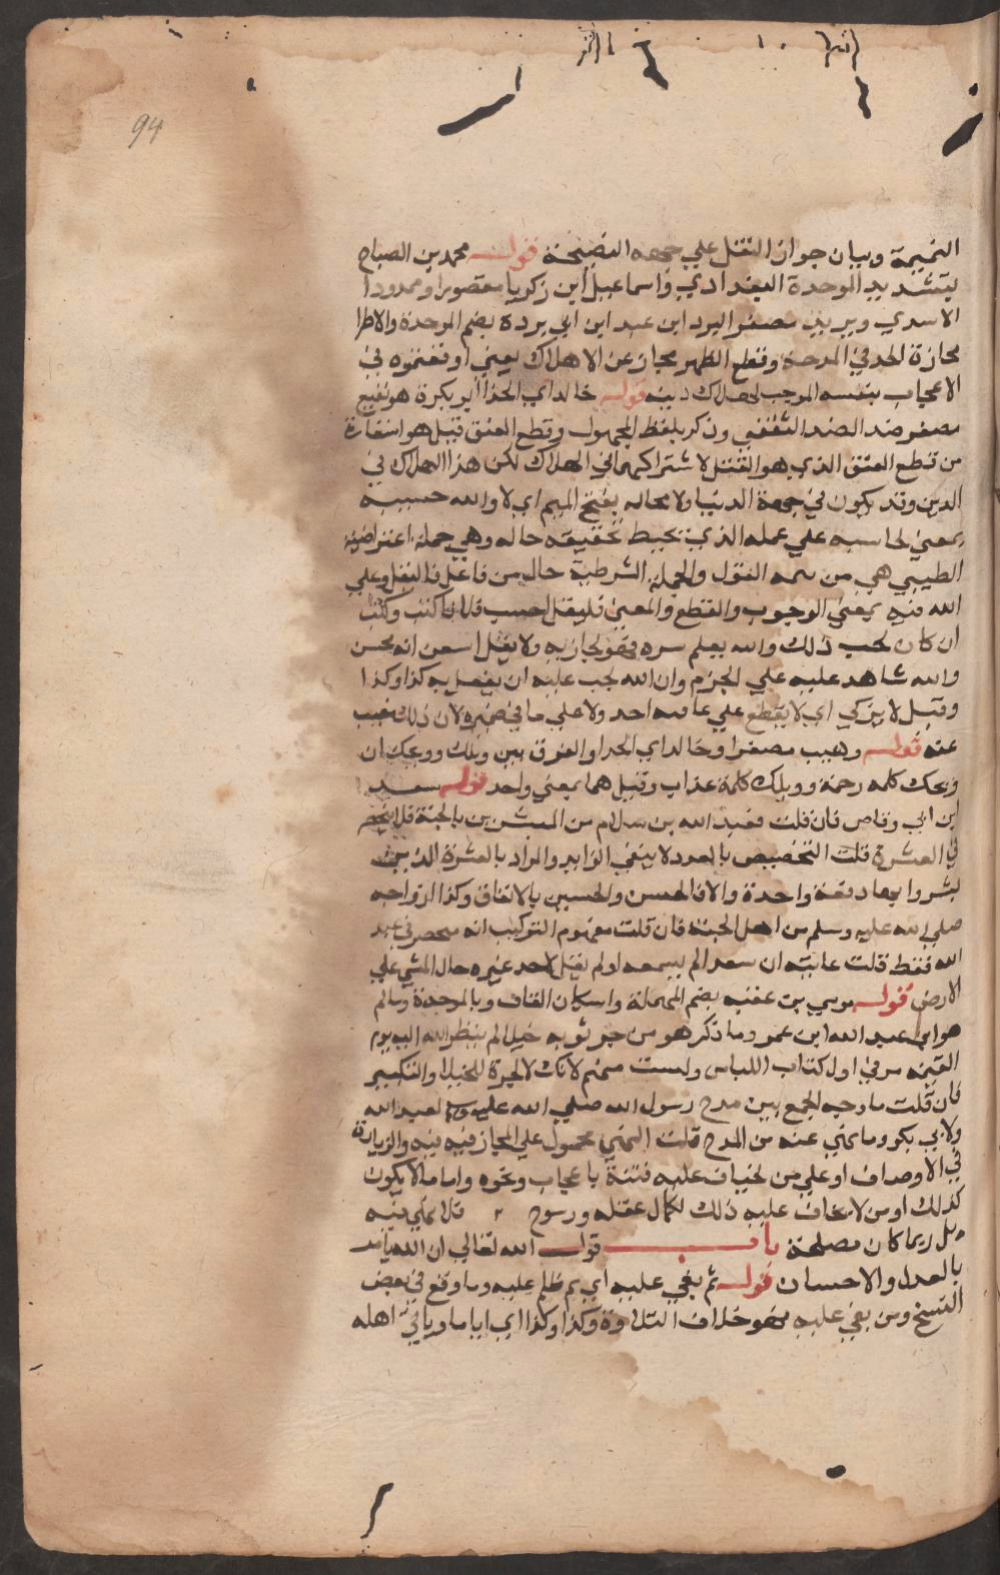 94
النميمة وبيان جواز النقل علي جهة النصيحة قوله محمد بن الصباح
بتشديد الموحدة البغدادي واسماعيل ابن زكريا مقصورا وممدودا
الاسدي وبريد مصغر البرد ابن عبد ابن ابي بردة بضم الموحدة والاطرا
مجازة الحد في المدحة وقطع الظهر مجاز عن الاهلاك يعني اوقعتموه في
الاعجاب بنفسه الموجب لهلاك دينه قوله خالد اي الحذا ابو بكرة هو نفيع
مصغر ضد الضر الثقفي وذكر بلفظ المجهول وقطع العنق قيل هو استعارة
من قطع العنق الذي هو القتل لاشتراكهما في الهلاك لكن هذا الهلاك في
الدين وقد يكون في جهة الدنيا ولا محاله بفتح الميم اي لا والله حسيبه
يعني محاسبه علي عمله الذي يحيط بحقيقة حاله وهي جملة اعتراضية
الطيبي هي من تتمه القول والجملة الشرطية حال من فاعل فليقل وعلي
الله فيه بمعني الوجوب والقطع والمعني فليقل احسب فلانا كيت وكيت
ان كان يحسب ذلك والله يعلم سره فهو يجازيه ولا يقل اتيقن انه محسن
والله شاهد عليه علي الجزم وان الله يجب عليه ان يفعل به كذا وكذا
وقيل لا يزكي اي لا يقطع علي عاقبه احد ولا علي ما في ضميره لان ذلك مغيب
عنه قوله وهيب مصغرا وخالد اي الحذا والفرق بين ويلك وويحك ان
ويحك كلمه رحمة وويلك كلمة عذاب وقيل هما بمعني واحد قوله سعد
ابن ابي وقاص فان قلت فعبد الله بن سلام من المبشرين بالجنة فلا ينحصر
في العشرة قلت التخصيص بالعدد لا ينفي الزايد والمراد بالعشرة الذين
بشروا بها دفعة واحدة والا فالحسن والحسين بالاتفاق وكذا ازواجه
صلي الله عليه وسلم من اهل الجنة فان قلت مفهوم التركيب انه منحصر في عبد
الله فقط قلت غايته ان سعدا لم يسمعه او لم يقل لاحد غيره حال المشي علي
الارض قوله موسي بن عقبه بضم المهملة واسكان القاف وبالموحدة وسالم
هو ابن عبد الله ابن عمر وما ذكر هو من جر ثوبه خيلا لم ينظر الله اليه يوم
القيمة مر في اول كتاب اللباس ولست منهم لانك لا تجره للخيلا والتكبر
فان قلت ما وجه الجمع بين مدح رسول الله صلي الله عليه وسلم لعبد الله
ولابي بكر وما نهي عنه من المدح قلت النهي محمول علي المجازفة فيه والزيادة
في الاوصاف او علي من يخاف عليه فتنة باعجاب ونحوه واما ما لا يكون
كذلك او من لا يخاف عليه ذلك لكمال عقله ورسوخ فلا نهي فيه
بل ربما كان مصلحة باب قول الله تعالي ان الله يامر
بالعدل والاحسان قوله ثم بغي عليه اي ثم ظلم عليه وما وقع في بعض
النسخ ومن بغي عليه فهو خلاف التلاوة وكذا وكذا اي اياما وياتي اهله